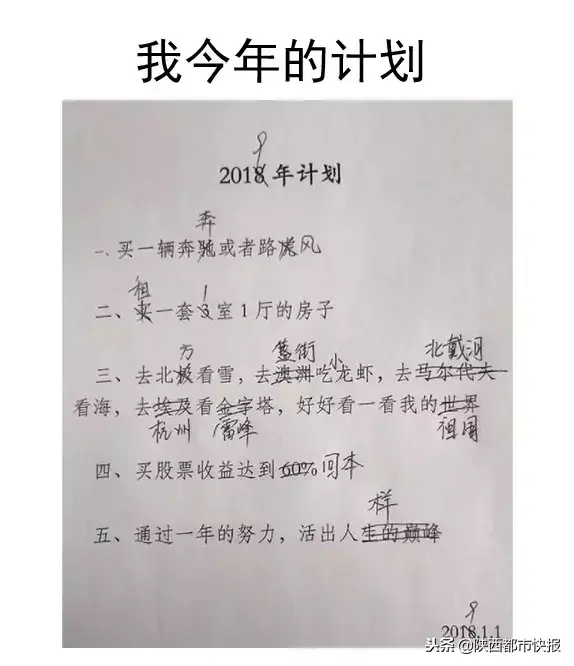 我今年的计划
9
2018年计划
奔
一、买一辆奔驰或者路虎风
租 1
二、买一套3室1厅的房子
方 簋街 小 北戴河
三、去北极看雪，去澳洲吃龙虾，去马尔代夫
看海，去埃及看金字塔，好好看一看我的世界
杭州 雷峰 祖国
四、买股票收益达到60%回本
样
五、通过一年的努力，活出人生的巅峰
9
2018.1.1
头条 @陕西都市快报